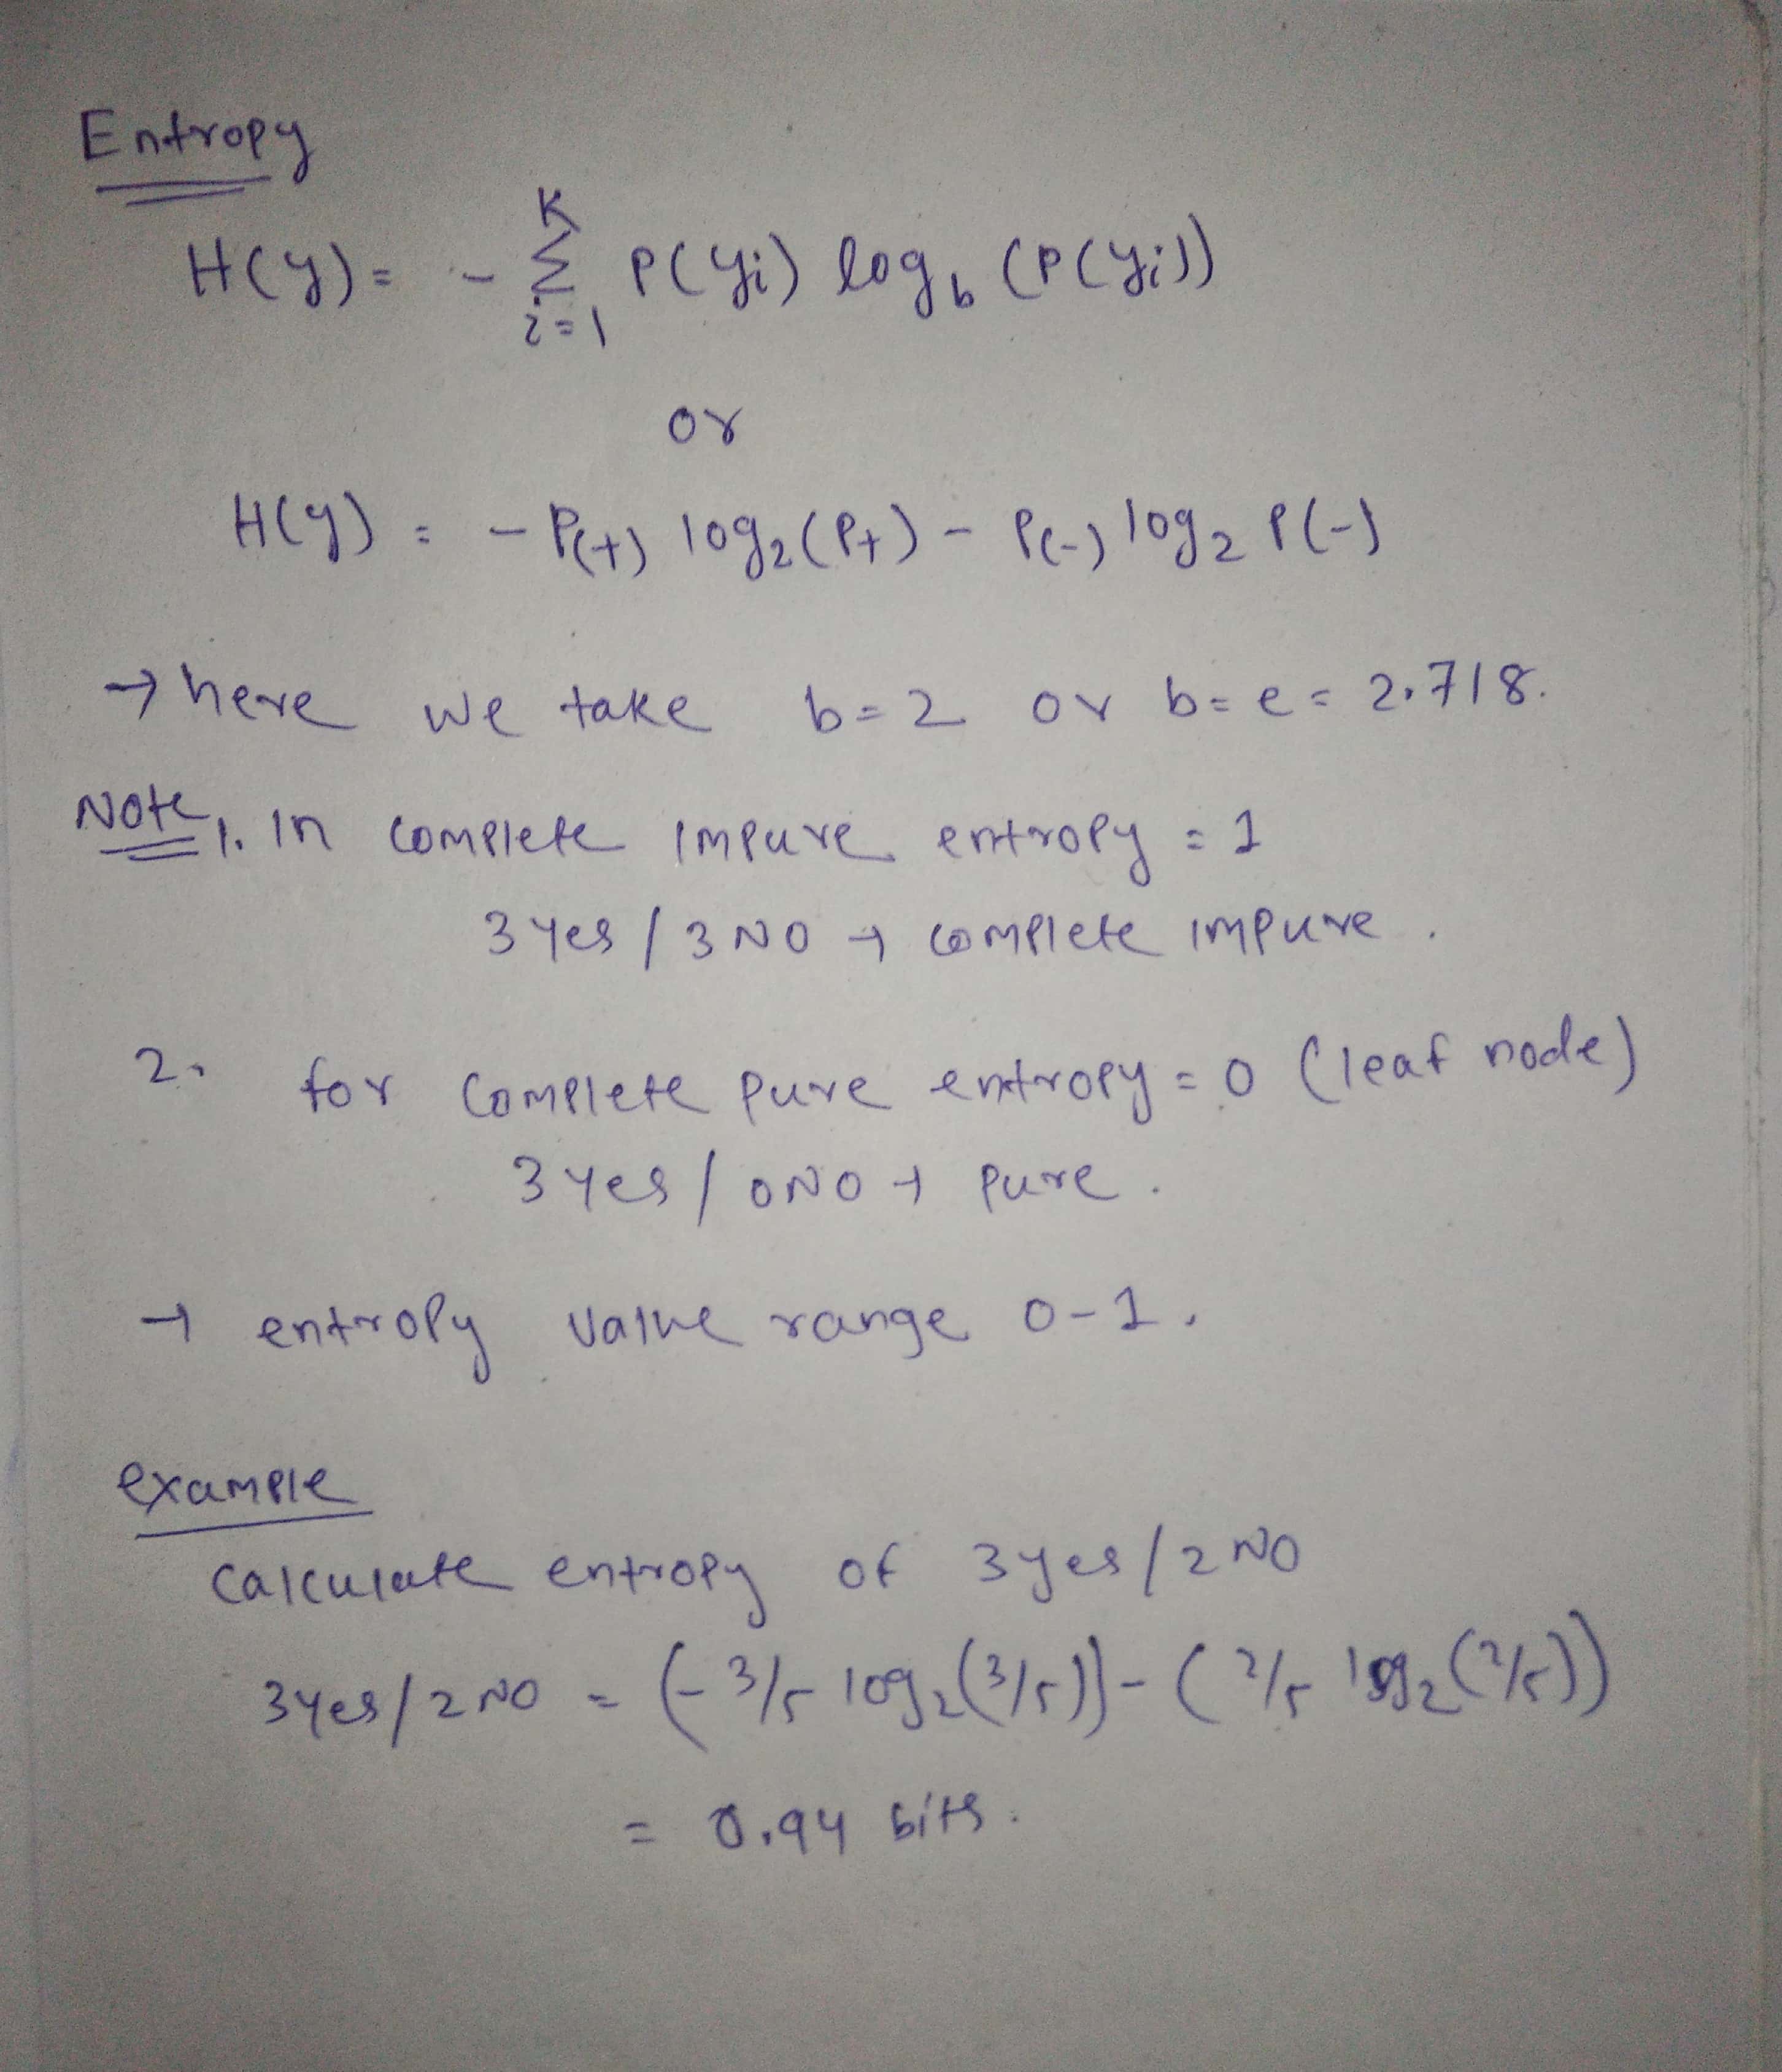 Entropy
H(y) = - K Σ i=1 P(yi) logb (P(yi))
or
H(y) = - P(+) log2(P+) - P(-) log2 P(-)
→ here we take b=2 or b=e=2.718.
Note 1. In complete impure entropy = 1
3 yes / 3 NO → complete impure.
2. for complete pure entropy = 0 (leaf node)
3 yes / 0 NO → pure.
→ entropy value range 0-1.
example
calculate entropy of 3 yes / 2 NO
3 yes / 2 NO = (- 3/5 log2 (3/5)) - (2/5 log2 (2/5))
= 0.94 bits.